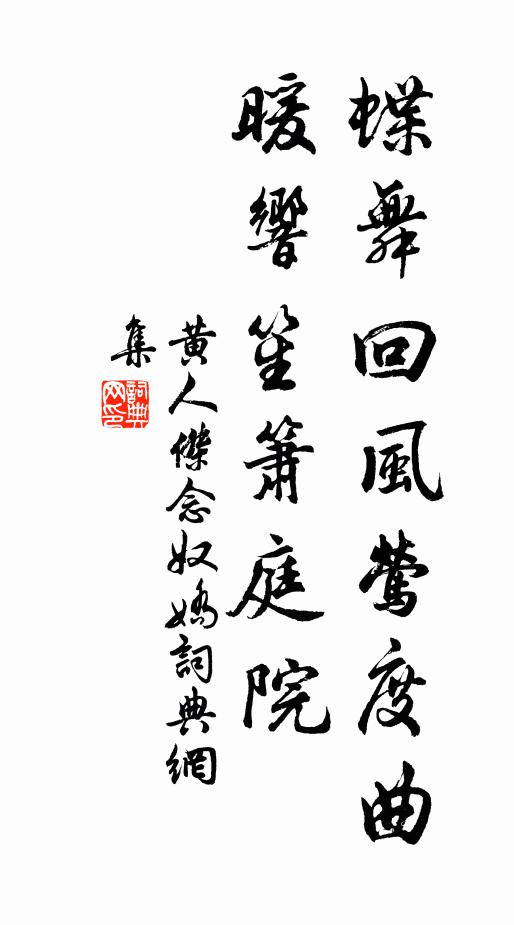 蝶舞回風鶯度曲
暖響笙簫庭院
黄人傑念奴嬌詞典網
集
詞典
网印